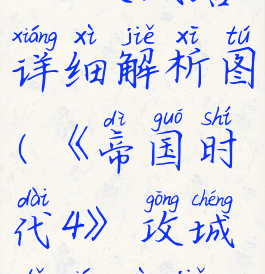 xiáng xì jiě xī tú
详细解析图
dì guó shí
(《帝国时
dài gōng chéng
代4》攻城